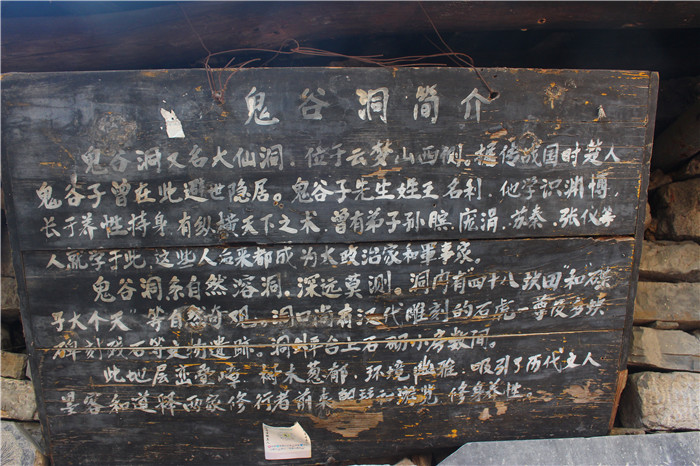 鬼谷洞简介
鬼谷洞又名大仙洞，位于云梦山西侧。据传战国时楚人
鬼谷子曾在此避世隐居。鬼谷子先生姓王名利，他学识渊博，
长于养性持身，有纵横天下之术，曾有弟子孙膑、庞涓、苏秦、张仪等
人就学于此，这些人后来都成为大政治家和军事家。
鬼谷洞系自然溶洞，深远莫测。洞内有"四十八块田"和
"等自然奇观。洞口尚有汉代雕刻的石虎一尊及多块
碑刻
等文物遗迹。洞
平台上石
小房数间。
此地层峦叠嶂，树木葱郁，环境幽雅，吸引了历代文人
墨客和道释两家修行者前来
游览，修身养性。